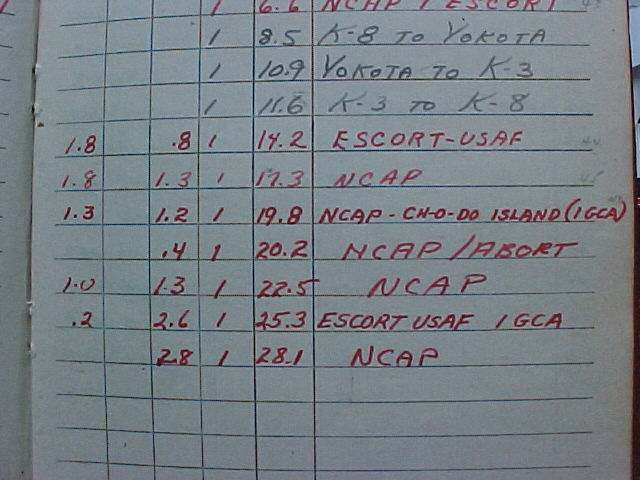 1 6.6 NCAP / ESCORT
1 8.5 K-8 TO YOKOTA
1 10.9 YOKOTA TO K-3
1 11.6 K-3 TO K-8
1.8 .8 1 14.2 ESCORT-USAF
1.8 1.3 1 17.3 NCAP
1.3 1.2 1 19.8 NCAP - CH-O-DO ISLAND (1GCA)
.4 1 20.2 NCAP/ABORT
1.0 1.3 1 22.5 NCAP
.2 2.6 1 25.3 ESCORT USAF 1GCA
2.8 1 28.1 NCAP